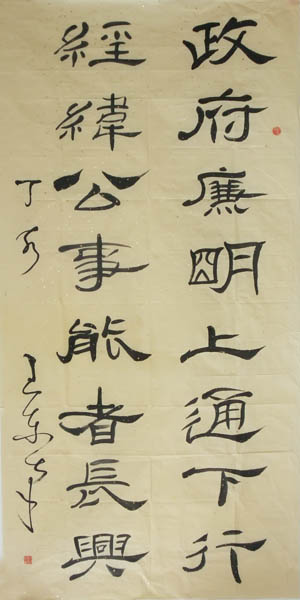 政府廉明上通下行
經緯公事能者長興
丁亥
王东